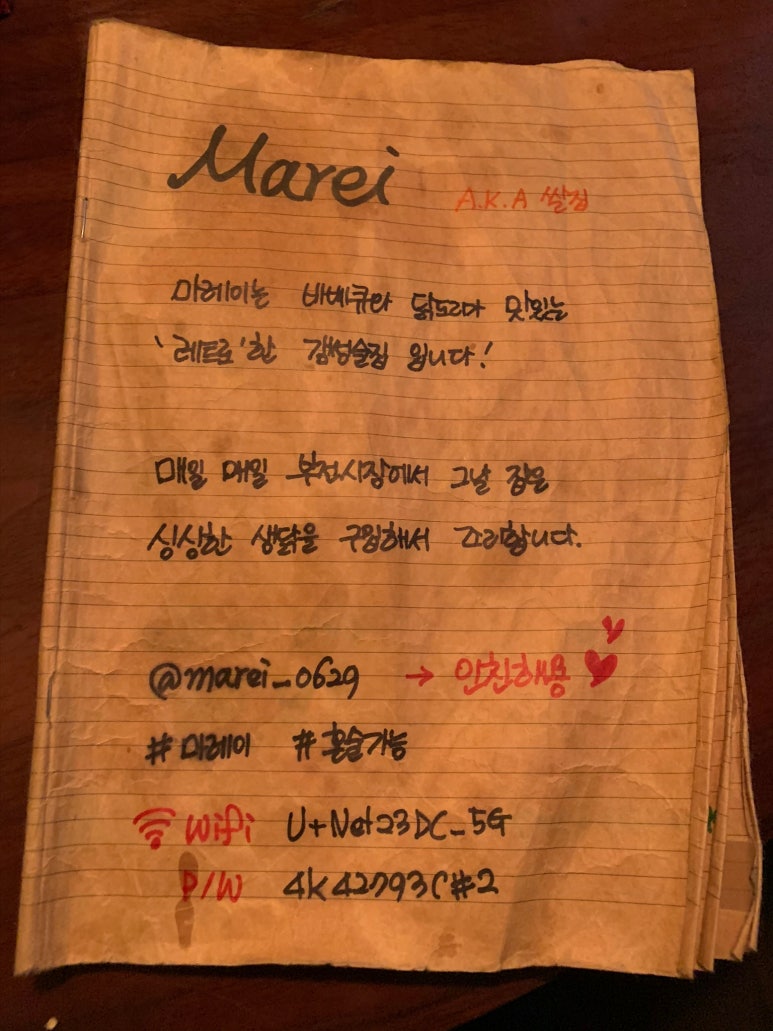 Marei A.K.A 쌀집
마레이는 바베큐와 닭도리가 맛있는
'레트로'한 갬성술집 입니다!
매일 매일 부전시장에서 그날 잡은
싱싱한 생닭을 구입해서 조리합니다.
@marei_0629 → 인친해용 ♥♥
#마레이 #혼술가능
Wifi U+Net23DC_5G
P/W 4k42793C#2